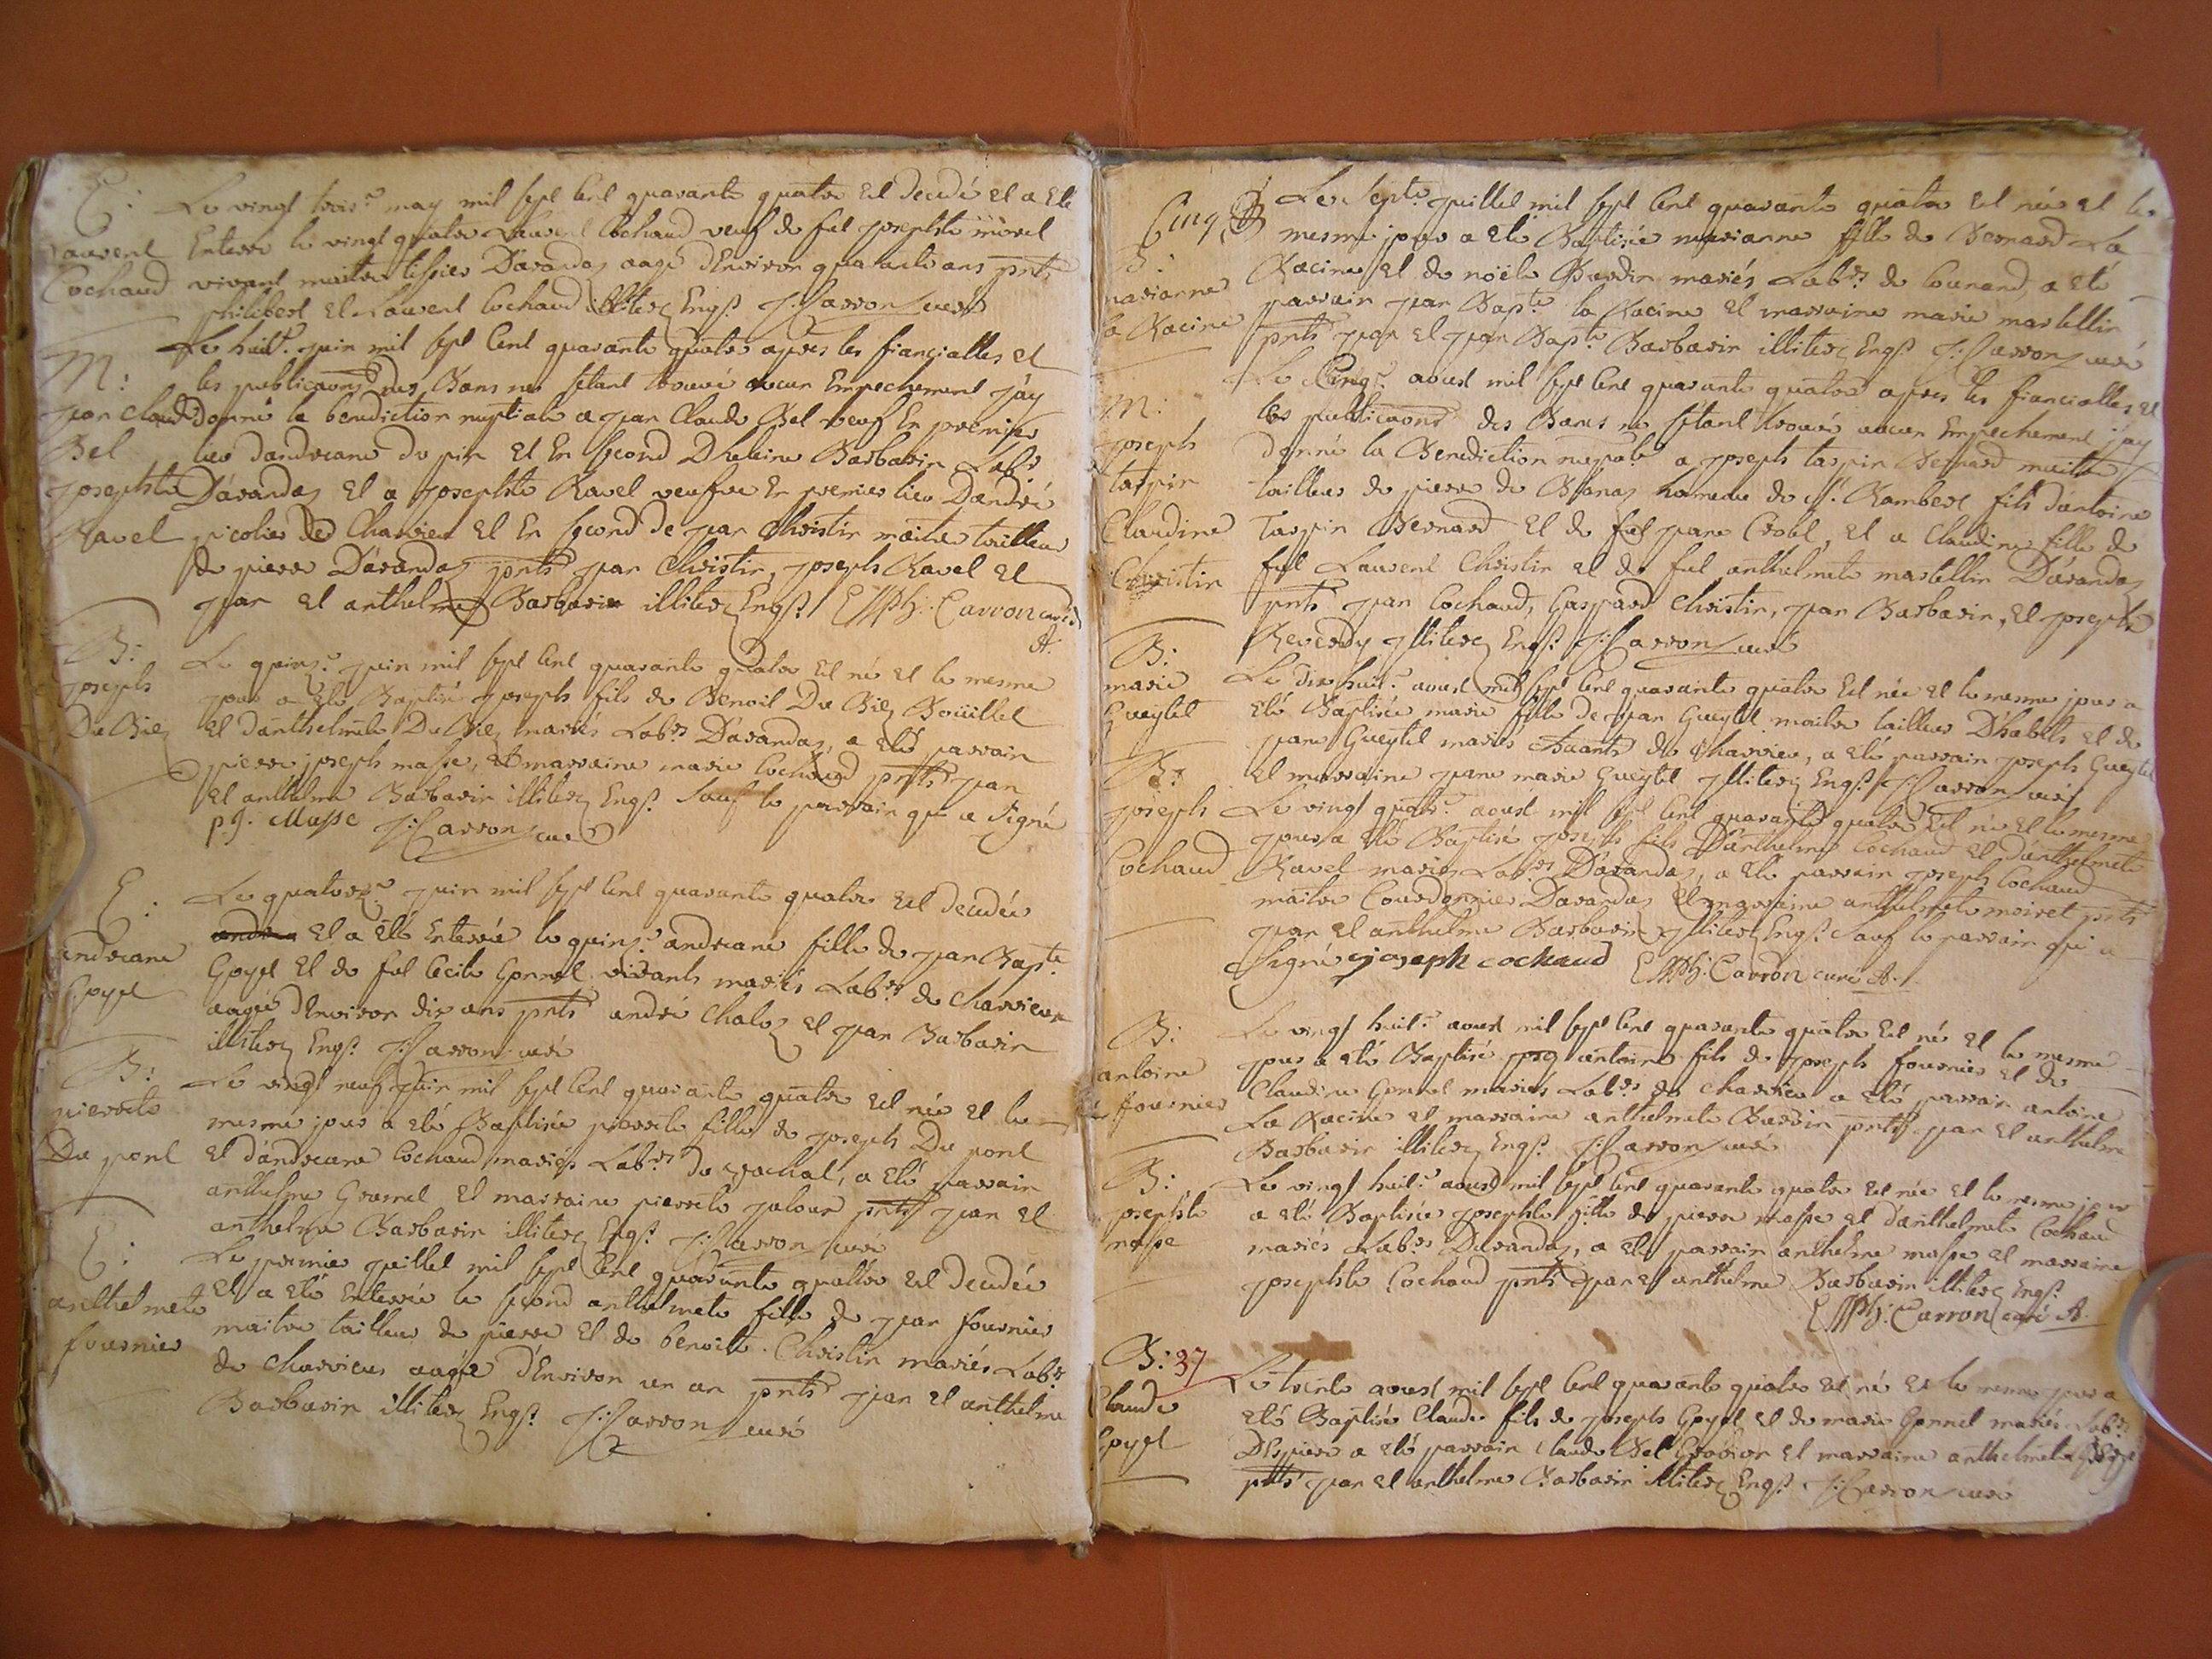 E:
Laurent
Cochaud
Le vingt trois.e may mil sept cent quarante quatre est decedé et a eté
Enterré le vingt quatre Laurent Cochaud veuf de feü josephte
vivant maitre tissier D'arandaz aagé d'Environ quarante ans pnts
philibert et Laurent Cochaud illiterz Engs. J: Carron curé
M:
jean claude
Bel
josephte
Ravel
Le huit.e juin mil sept cent quarante quatre apres les fiancialles et
les publicaons des Bans ne s'etant trouvé aucun Empechement j'ay
donné la benediction nuptiale a jean Claude Bel veuf En premier
lieu dandreane du pin et En second D'heleine Barbarin Labrs
D'arandaz et a josephte Ravel veufve En premier lieu D'andré
picolier de Charvieu et En second de jean Christin maitre tailleur
de pierre D'arandaz pnts jean Christin, joseph Ravel et
jean et anthelme Barbarin illiterz Engs. Carron curé
A.
B:
joseph
Du Biez
Le quinz.e juin mil sept cent quarante quatre est né et le mesme
jour a eté Baptisé joseph fils de Benoit Du Biez Boüillet
et d'anthelmete Du Biez mariés Labrs D'arandaz, a eté parrain
pierre joseph masse, et marraine marie Cochaud pnts jean
et anthelme Barbarin illiterz Engs. Sauf le parrain qui a Signé
p J. Masse J: Carron curé
E:
andreane
Goyet
Le quatorz.e juin mil sept cent quarante quatre est decedée
et a eté Enterrée le quinz.e andreane fille de jean Bapt.e
Goyet et de feü Cecile Gonnet vivants mariés Labrs de Charvieu
aagée d'Environ dix ans pnts andré Chaloz et jean Barbarin
illiterz Engs. J: Carron curé
B:
pierrete
Du pont
Le vingt neuf juin mil sept cent quarante quatre est née et le
mesme jour a eté Baptisée pierrete fille de joseph Du pont
et d'andreane Cochaud mariés Labrs de vachat, a eté parrain
anthelme Gromel et marraine pierrete jalour pnts jean et
anthelme Barbarin illiterz Engs. J: Carron curé
E:
anthelmete
fournier
Le premier juillet mil sept cent quarante quattre est decedée
et a eté Enterrée le second anthelmete fille de jean fournier
maitre tailleur de pierre et de benoite Christin mariés Labrs
de Charvieux aagée d'Environ un an pnts jean et anthelme
Barbarin illiterz Engs. J: Carron curé
Cinq
B:
marianne
la Racine
Le Sept.e juillet mil sept cent quarante quatre est née et le
mesme jour a eté Baptisée marianne fille de Bernard La
Racine et de noële Burdin mariés Labrs de Counand, a eté
parrain jean Bapt.e la Racine et marraine marie martellin
pnts jean et jean Bapt.e Barbarin illiterz Engs. J: Carron curé
M:
joseph
tarpin
Claudine
Christin
Le Cinq.e aoust mil sept cent quarante quatre apres les fiancialles et
les publicaons des Bans ne s'étant trouvé aucun Empechement j'ay
donné la Benediction nupale a joseph tarpin Bernard maitre
tailleur de pierre de Blanaz hameau de St. Rambert fils d'antoine
Tarpin Bernard et de feü jeane Crotel, et a Claudine fille de
feü Laurent Christin et de feü anthelmete martellin D'arandaz
pnts jean Cochaud, Gaspard Christin, jean Barbarin, et joseph
Reverdy illiterz Engs. J: Carron curé
B:
marie
Gueytel
Le dix huit.e aoust mil sept cent quarante quatre est née et le mesme jour a
eté Baptisée marie fille de jean Gueytel maitre tailleur D'habits et de
jeane Gueytel mariés habitants de Charvieu, a eté parrain joseph Gueytel
et marraine jeane marie Gueytel illiterz Engs. J: Carron curé
B:
joseph
Cochaud
Le vingt quatr.e aoust mil sept cent quarante quatre est né et le mesme
jour a eté Baptisé joseph fils D'anthelme Cochaud et d'anthelmete
Ravel mariés Labrs D'arandaz, a eté parrain joseph Cochaud
maitre Courdonnier D'arandaz et marraine anthelmete moiret pnts
jean et anthelme Barbarin illiterz Engs. Sauf le parrain qui a
Signé joseph cochaud Carron curé A.
B:
antoine
fournier
Le vingt huit.e aoust mil sept cent quarante quatre est né et le mesme
jour a eté Baptisé antoine fils de joseph fournier et de
Claudine Gonnet mariés Labrs de Charvieu a eté parrain antoine
La Racine et marraine anthelmete Burdin pnts jean et anthelme
Barbarin illiterz Engs. J: Carron curé
B:
josephte
masse
Le vingt huit.e aoust mil sept cent quarante quatre est née et le mesme jour
a eté Baptisée josephte fille de pierre masse et d'anthelmete Cochaud
mariés Labrs D'arandaz, a eté parrain anthelme masse et marraine
josephte Cochaud pnts jean et anthelme Barbarin illiterz Engs.
Carron curé A.
B: 37
Claude
Goyet
Le trente aoust mil sept cent quarante quatre est né et le mesme jour a
eté Baptisé Claude fils de joseph Goyet et de marie Gonnet mariés Labrs
D'Espierre a eté parrain Claude Bel et marraine anthelmete
pnts jean et anthelme Barbarin illiterz Engs. J: Carron curé